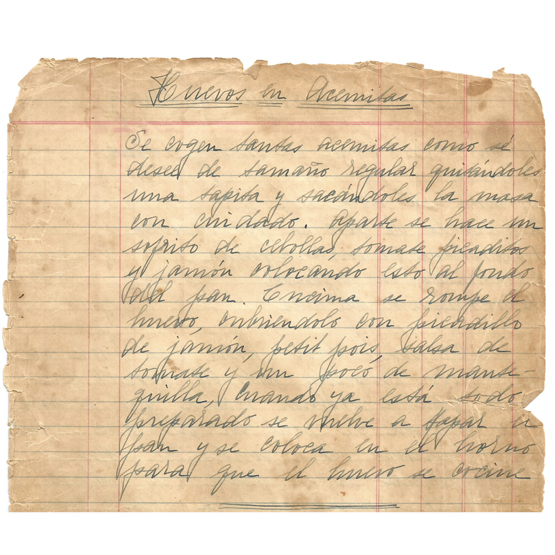 Huevos en Acemitas
Se cogen tantas acemitas como sé
desea de tamaño regular quitándoles
una tapita y sacándoles la masa
con cuidado. Aparte se hace un
sofrito de cebollas, tomate picaditos
y jamón colocando esto al fondo
del pan. Encima se rompe el
huevo, cubriéndolo con picadillo
de jamón, petit pois, salsa de
tomate y un poco de mante-
quilla, cuando ya está todo
preparado se vuelve a tapar el
pan y se coloca en el horno
para que el huevo se cocine